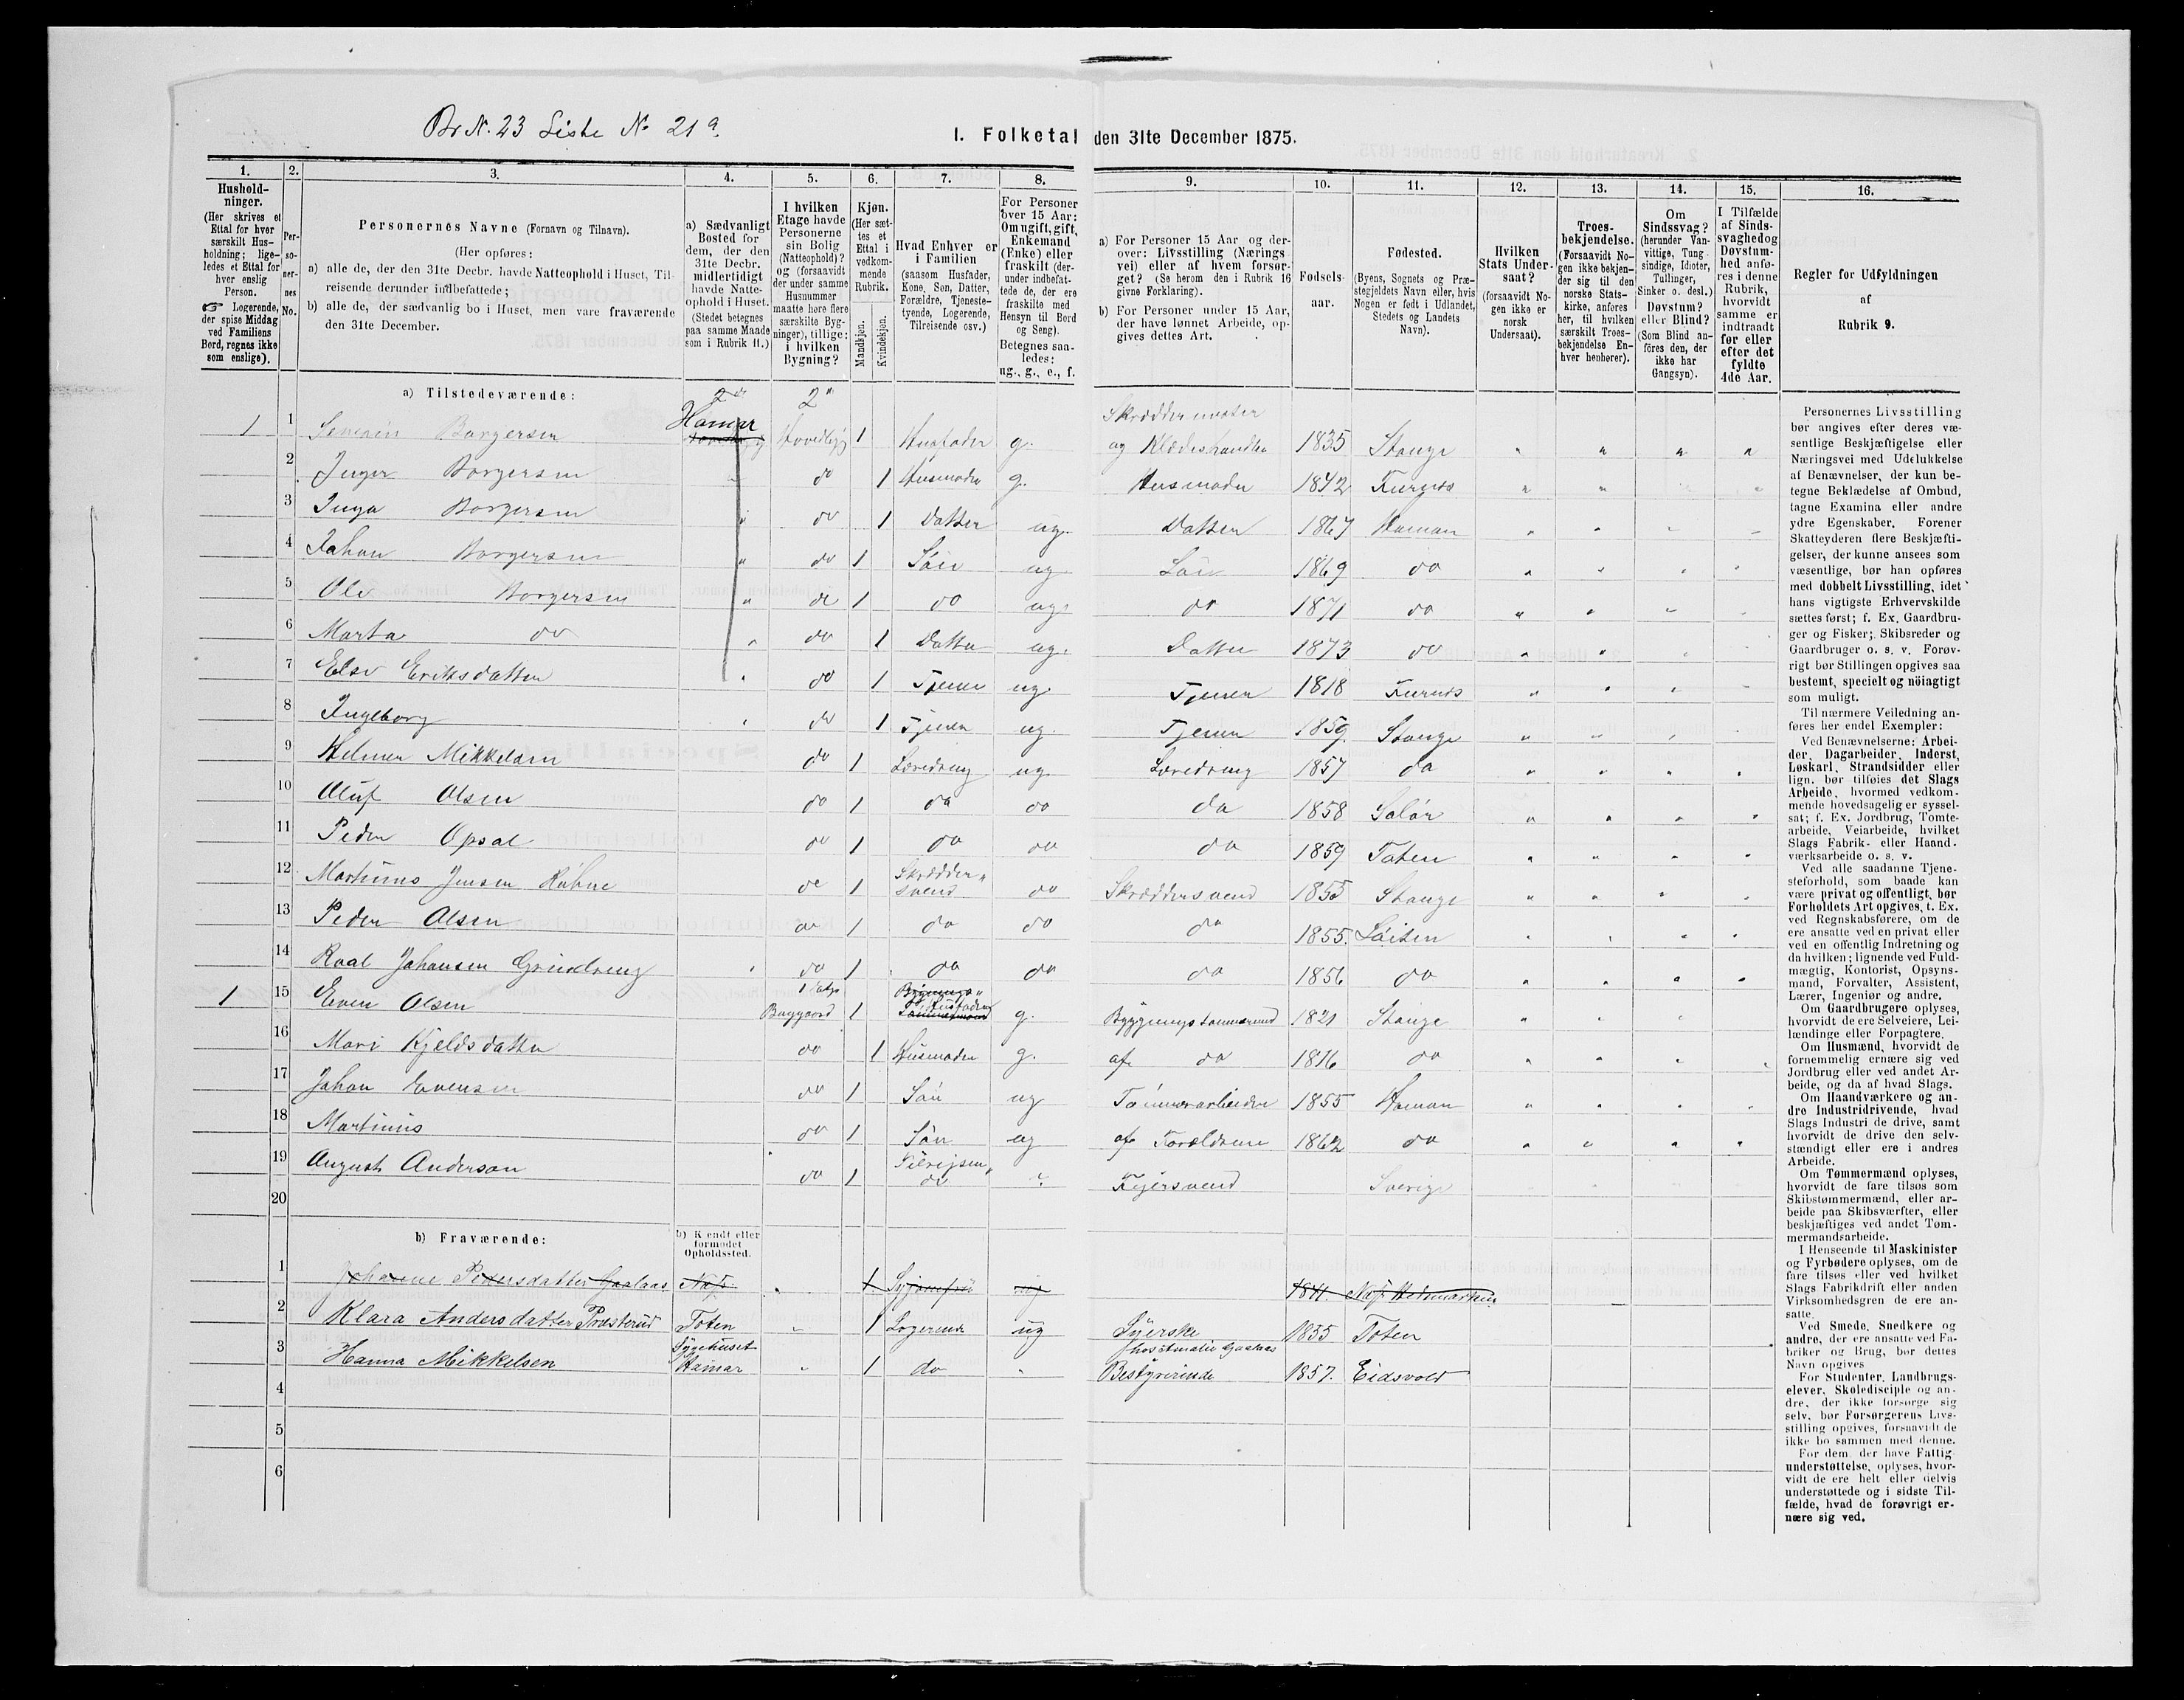 Br N. 23 Liste No 21a.
I. Folketal den 31te December 1875.
1. 2. 3. 4. 5. 6. 7. 8. 9. 10. 11. 12. 13. 14. 15. 16.
Hushold-
ninger.
(Her skrives et
Ettal for hver
særskilt Hus-
holdning; lige-
ledes et Ettal for
hver enslig
Person.
☞ Logerende,
der spise Middag
ved Familiens
Bord, regnes ikke
som enslige).
Per-
so-
ner-
nes
No.
Personernes Navne (Fornavn og Tilnavn).
(Her opføres:
a) alle de, der den 31te Decbr. havde Natteophold i Huset, Til-
reisende derunder indbefattede;
b) alle de, der sædvanlig bo i Huset, men vare fraværende
den 31te December.
a) Sædvanligt
Bosted for
dem, der den
31te Decbr.
midlertidigt
havde Natte-
ophold i Huset.
(Stedet betegnes
paa samme Maade
som i Rubrik 11.)
I hvilken
Etage havde
Personerne
sin Bolig
(Natteophold)?
og (forsaavidt
der under samme
Husnummer
maatte høre flere
særskilte Byg-
ninger), tillige:
i hvilken
Bygning?
Kjøn.
(Her sæt-
tes et
Ettal i
vedkom-
mende
Rubrik.
Mandkjøn.
Kvindekjøn.
Hvad Enhver er
i Familien
(saasom Husfader,
Kone, Søn, Datter,
Forældre, Tjeneste-
tyende, Logerende,
Tilreisende osv.)
For Personer
over 15 Aar:
Om ugift, gift,
Enkemand
(Enke) eller
fraskilt (der-
under indbefat-
tede de, der ere
fraskilte med
Hensyn til Bord
og Seng).
Betegnes saa-
ledes:
ug., g., e., f.
a) For Personer 15 Aar og der-
over: Livsstilling (Nærings-
vei) eller af hvem forsør-
get? (Se herom den i Rubrik 16
givne Forklaring).
b) For Personer under 15 Aar,
der have lønnet Arbeide, op-
gives dettes Art.
Fødsels-
aar.
Fødested.
(Byens, Sognets og Præ-
stegjeldets Navn eller, hvis
Nogen er født i Udlandet,
Stedets og Landets
Navn).
Hvilken
Stats Under-
saat?
(forsaavidt No-
gen ikke er
norsk
Undersaat).
Troes-
bekjendelse.
(Forsaavidt No-
gen ikke bekjen-
der sig til den
norske Stats-
kirke, anføres
her, til hvilken
særskilt Troes-
bekjendelse En-
hver henhører).
Om
Sindssvag?
(herunder Van-
vittige, Tung-
sindige, Idioter,
Tullinger,
Sinker o. desl.)
Døvstum?
eller Blind?
(Som Blind an-
föres den, der
ikke har
Gangsyn).
I Tilfælde
af Sinds-
svaghed og
Døvstum-
hed anfø-
res i denne
Rubrik,
hvorvidt
samme er
indtraadt
før eller
efter det
fyldte
4de Aar.
Regler for Udfyldningen
af
Rubrik 9.
a) Tilstedeværende:
1 1 Borgersen Hamar 1 Husfader g. Skræddermester og Klædeshandler 1835 Stange
2 Inger Borgersen do 1 Husmoder g. Husmoder 1842 Furnes
3 Inga Borgersen do 1 Datter ug. Datter 1867 Hamar
4 Johan Borgersen do 1 Søn ug Søn 1869 do
5 Ole Borgersen do 1 do ug. do 1871 do
6 Marta do do 1 Datter ug. Datter 1873 do
7 Else Eriksdatter do 1 Tjener ug. Tjener 1818 Furnes
8 Ingeborg do 1 Tjener ug. Tjener 1859. Stange
9 Helmer Mikkelsen do 1 Læredreng ug. Læredreng 1857 do
10 Oluf Olsen do 1 do do do 1858 Solør
11 Peder Opsal do 1 do do do 1859 Toten
12 Martinus Jensen do 1 Skræddersvend do Skræddersvend 1855 Stange
13 Peder Olsen do 1 do do do 1855. Løiten
14 Roal Johansen Grindreng do 1 do do do 1856 do
1 15 Even Olsen Baggaard 1 Husfader g. Bygningstømmermand 1821 Stange
16 Mari Kjeldsdatter do 1 Husmoder g. af do 1816 do
17 Johan Evensen do 1 Søn ug Tømmerarbeider 1855 Hamar
18 Martinus do 1 Søn ug af Forældrene 1862 do
19 August Anderson do 1 Tilreisende Sverige
20
b) Fraværende:
b) Kendt eller
formodet
Opholdssted.
1 Johanne Pedersdatter Gaalaas Næs 1 Syjomfru ug 1841. Næs Hedemarken
2 Klara Andersdatter Præsterud Toten 1 Logerende ug Syerske 1855 Toten
3 Hanna Mikkelsen Sygehuset Hamar 1 do Bestyrerinde hos Amalie Gaalaas 1857. Eidsvold
4
5
6
Personernes Livsstilling
bør angives efter deres væ-
sentlige Beskjæftigelse eller
Næringsvei med Udelukkelse
af Benævnelser, der kun be-
tegne Beklædelse af Ombud,
tagne Examina eller andre
ydre Egenskaber. Forener
Skatteyderen flere Beskjæfti-
gelser, der kunne ansees som
væsentlige, bør han opføres
med dobbelt Livsstilling, idet
hans vigtigste Erhvervskilde
sættes først; f. Ex. Gaardbru-
ger og Fisker; Skibsreder og
Gaardbruger o. s. v. Forøv-
rigt bør Stillingen opgives saa
bestemt, specielt og nöiagtigt
som muligt.
Til nærmere Veiledning an-
føres her endel Exempler:
Ved Benævnelserne: Arbei-
der, Dagarbeider, Inderst,
Løskarl, Strandsidder eller
lign. bør tilføies det Slags
Arbeide, hvormed vedkom-
mende hovedsagelig er syssel-
sat; f. Ex. Jordbrug, Tomte-
arbeide, Veiarbeide, hvilket
Slags Fabrik- eller Haand-
værksarbeide o. s. v.
Ved alle saadanne Tjene-
steforhold, som baade kan
være privat og offentligt, bør
Forholdets Art opgives, t. Ex.
ved Regnskabsførere, om de
ere ansatte ved en privat eller
ved en offentlig Indretning og
da hvilken; lignende ved Fuld-
mægtig, Kontorist, Opsyns-
mand, Forvalter, Assistent,
Lærer, Ingeniør og andre.
Om Gaardbrugere oplyses,
hvorvidt de ere Selveiere, Lei-
lændinge eller Forpagtere.
Om Husmænd, hvorvidt de
fornemmelig ernære sig ved
Jordbrug eller ved andet Ar-
beide, og da af hvad Slags.
Om Haandværkere og an-
dre Industridrivende, hvad
Slags Industri de drive, samt
hvorvidt de drive den selv-
stændigt eller ere i andres
Arbeide.
Om Tømmermænd oplyses,
hvorvidt de fare tilsøs som
Skibstømmermænd, eller ar-
beide paa Skibsværfter, eller
beskjæftiges ved andet Tøm-
mermandsarbeide.
I Henseende til Maskinister
og Fyrbødere oplyses, om de
fare tilsøs eller ved hvilket
Slags Fabrikdrift eller anden
Virksomhedsgren de ere an-
satte.
Ved Smede, Snedkere og
andre, der ere ansatte ved Fa-
briker og Brug, bør dettes
Navn opgives
For Studenter, Landbrugs-
elever, Skoledisciple og an-
dre, der ikke forsørge sig
selv, bør Forsørgerens Livs-
stilling opgives, forsaavidt de
ikke bo sammen med denne.
For dem, der have Fattig-
understøttelse, oplyses, hvor-
vidt de ere helt eller delvis
understøttede og i sidste Til-
fælde, hvad de forøvrigt er-
nære sig ved.